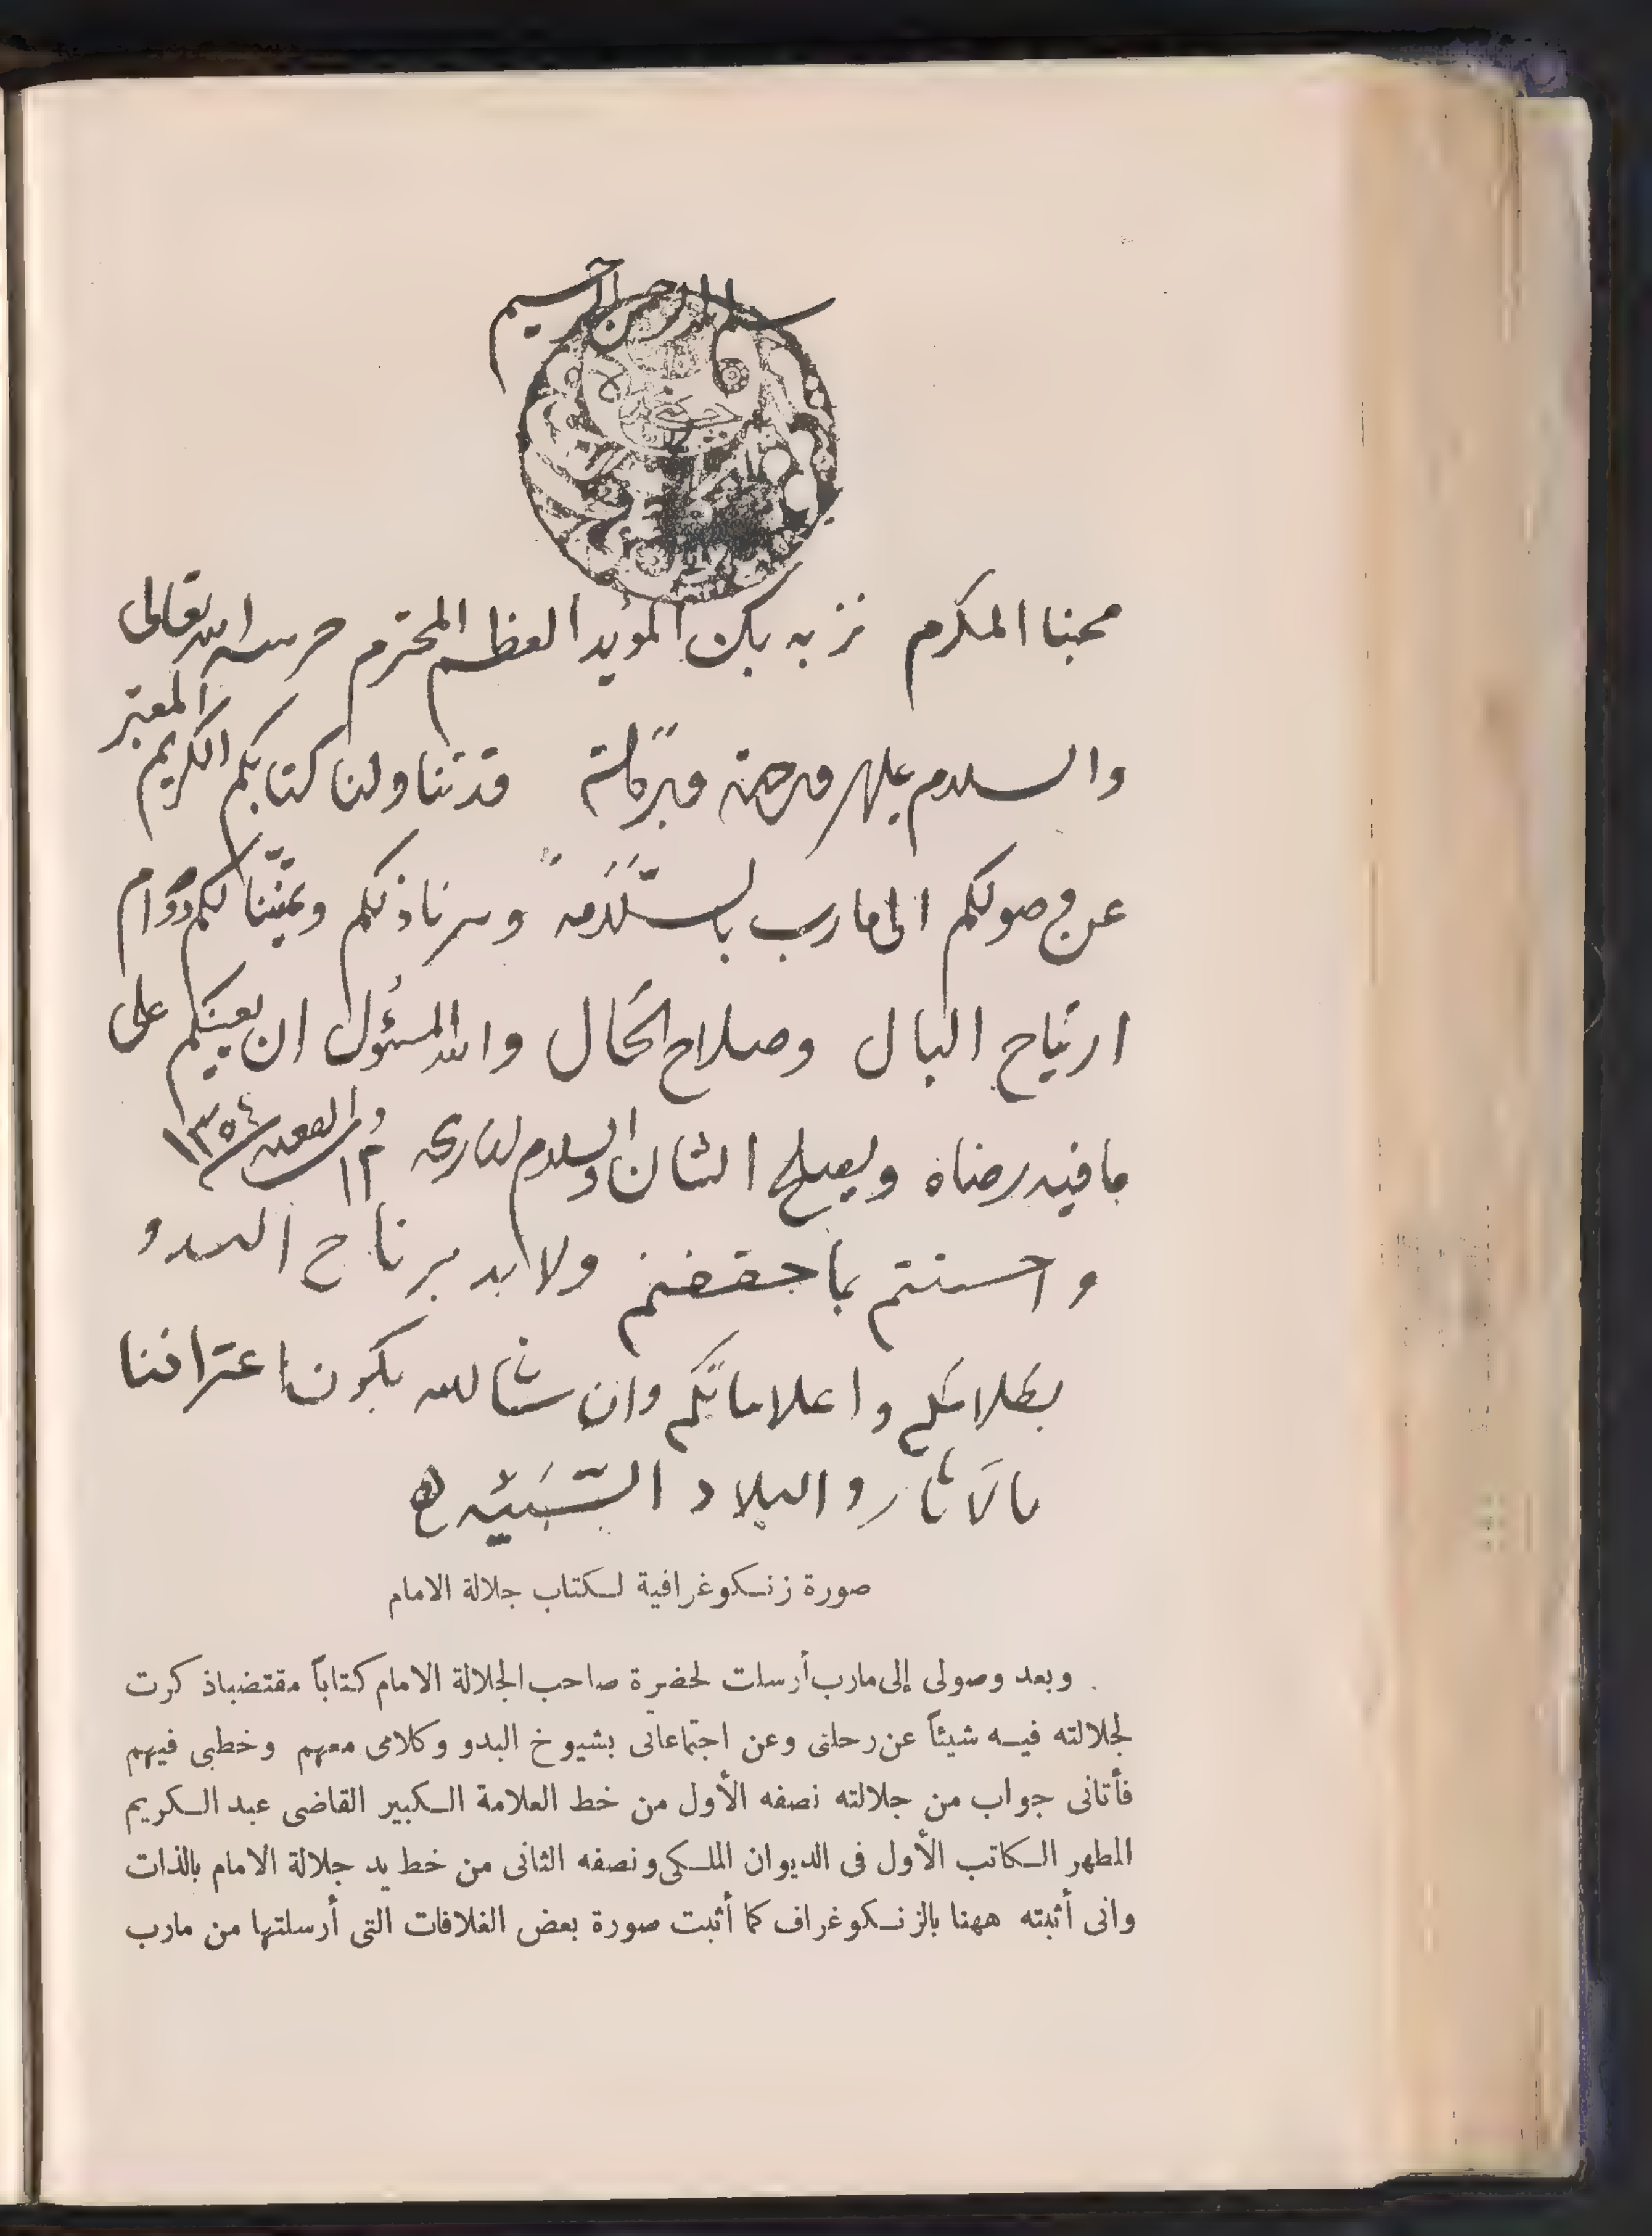 بسم الله الرحمن الرحيم
محبنا المكرم نزيه بك المؤيد العظم المحترم حرسه الله تعالى
والسلام عليكم ورحمته وبركاته قد تناولنا كتابكم الكريم المعتبر
عن وصولكم الى مارب بالسَّلامه وسرنا ذلكم وتمنّينا لكم دَوَام
ارتياح البال وصلاح الحَال والله المسئول ان يعينكم على
ما فيه رضاه ويصلح الشان والسلام ١٢ القعده ١٣٥٤
واحسنتم بما ولا بد يرتاح البدو
بكلامكم واعلاماتكم وان شا الله يكون اعترافنا
بالآثار والبلاد
صورة زنكوغرافية لكتاب جلالة الامام
وبعد وصولى إلى مارب أرسلت لحضرة صاحب الجلالة الامام كتاباً مقتضباذ كرت
لجلالته فيه شيئاً عن رحلتى وعن اجتماعاتى بشيوخ البدو وكلامى معهم وخطبى فيهم
فأتانى جواب من جلالته نصفه الأول من خط العلامة الكبير القاضى عبد الكريم
المطهر الكاتب الأول فى الديوان الملكى ونصفه الثانى من خط يد جلالة الامام بالذات
وانى أثبته ههنا بالزنكوغراف كما أثبت صورة بعض الغلافات التى أرسلتها من مارب